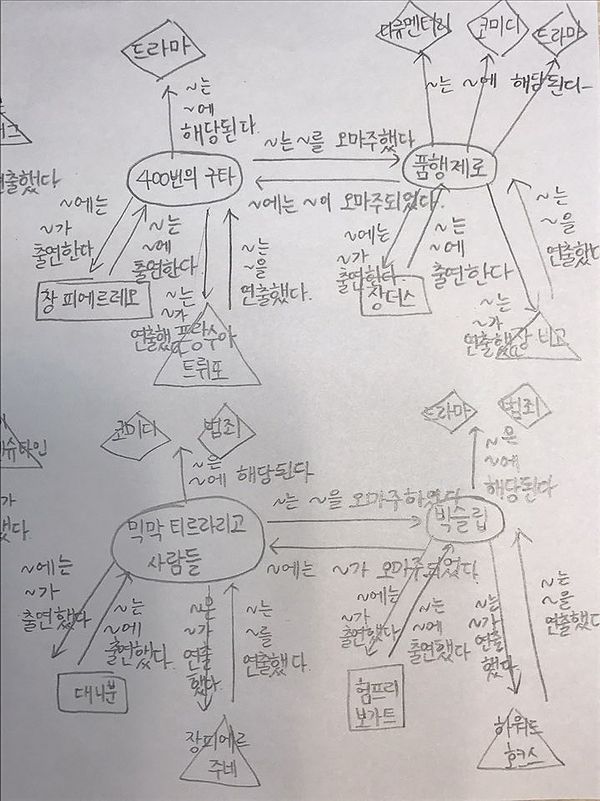 드라마
다큐멘터리
코미디
드라마
~는
~에
해당된다.
~는 ~에 해당된다-
400번의 구타
~는 ~를 오마주했다
~에는 ~이 오마주되었다.
품행제로
연출했다
~에는
~가
출연한다
~는
~에
출연한다
창 피에르레오
~는
~가
연출했다
~는
~을
연출했다.
프랑수아
트뤼포
~에는
~가
출연한다.
~는
~에
출연한다
장더스
~는
~가
연출했다
~는
~을
연출했다
장 비고
코미디
범죄
~은
~에 해당된다
드라마
범죄
~은
~에
해당된다
슈타인
~가
했다.
믹막 티르라리고
사람들
~는 ~을 오마주하였다
~에는 ~가 오마주되었다.
빅슬립
~에는
~가
출연했다
~는
~에
출연했다.
대니분
~은
~가
연출
했다.
~는
~를
연출했다.
장피에르
주네
~에는
~가
출연했다
~는
~에
출연했다
험프리
보가트
~는
~가
연출
했다.
~는
~을
연출했다
하워드
호크스